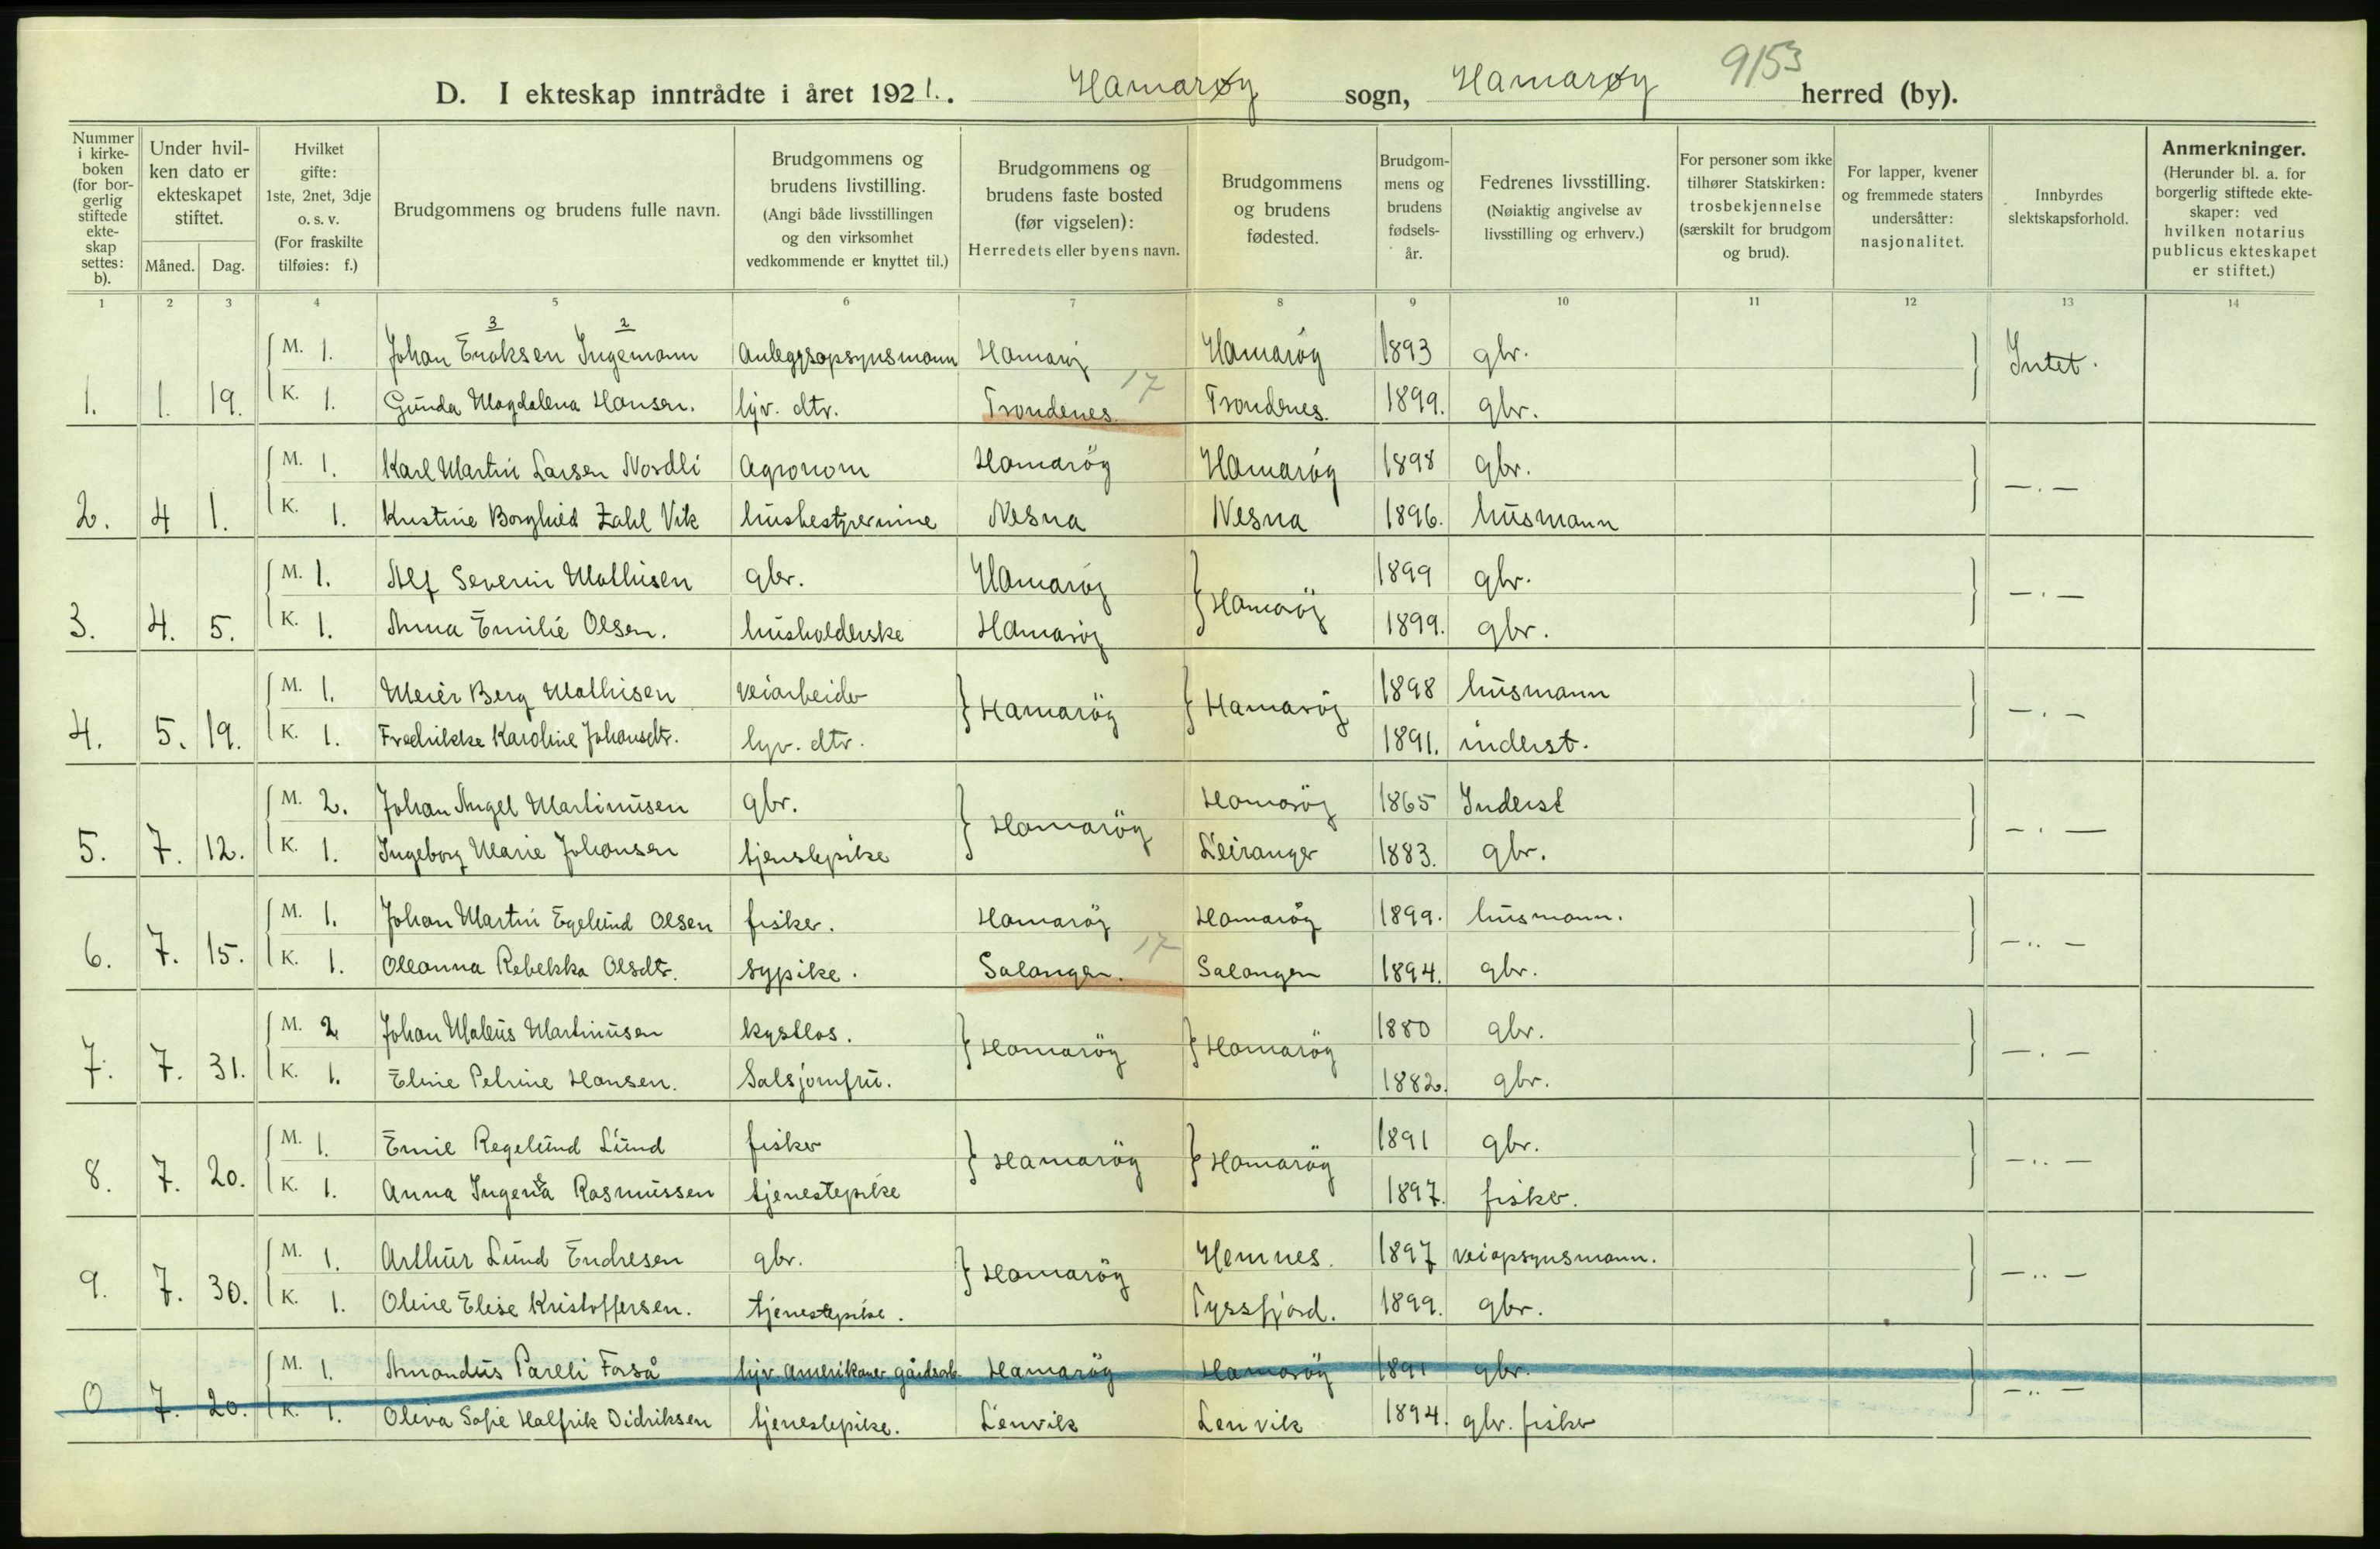 9153
D. I ekteskap inntrådte i året 1921. Hamarøy sogn, Hamarøy herred (by).
Nummer i kirke-boken (for bor-gerlig stiftede ekte-skap settes: b).
Under hvil-ken dato er ekteskapet stiftet.
Måned. Dag.
Hvilket gifte: 1ste, 2net, 3dje o. s. v. (For fraskilte tilføies: f.)
Brudgommens og brudens fulle navn.
Brudgommens og brudens livstilling. (Angi både livsstillingen og den virksomhet vedkommende er knyttet til.)
Brudgommens og brudens faste bosted (før vigselen): Herredets eller byens navn.
Brudgommens og brudens fødested.
Brudgom-mens og brudens fødsels-år.
Fedrenes livsstilling. (Nøiaktig angivelse av livsstilling og erhverv.)
For personer som ikke tilhører Statskirken: trosbekjennelse (særskilt for brudgom og brud).
For lapper, kvener og fremmede staters undersåtter: nasjonalitet.
Innbyrdes slektskapsforhold.
Anmerkninger. (Herunder bl. a. for borgerlig stiftede ekte-skaper: ved hvilken notarius publicus ekteskapet er stiftet.)
1 2 3 4 5 6 7 8 9 10 11 12 13 14
3 2
M. 1. Johan Eriksen Ingemann Anleggsopsynsmann Hamaröy Hamaröy 1893 gbr. Intet.
1. 1. 19. K. 1. Gunda Magdalena Hansen. hjv. dtr. Trondenes 17 Trondenes. 1899. gbr.
M. 1. Karl Martin Larsen Nordli Agronom Hamaröy Hamaröy 1898 gbr. —.—
2. 4 1. K. 1. Kristine Borghild Zahl Vik husbestyrerinne Nesna Nesna 1896. husmann
M. 1. Alf Severin Mathisen gbr. Hamaröy Hamaröy 1899 gbr. —.—
3. 4. 5. K. 1. Anna Emilie Olsen. husholderske Hamaröy 1899. gbr.
M. 1. Meier Berg Mathisen veiarbeider Hamaröy Hamaröy 1898 husmann —.—
4. 5. 19. K. 1. Fredrikke Karoline Johansdtr. hjv. dtr. 1891. inderst.
M. 2. Johan Angel Martinusen gbr. Hamaröy Hamaröy 1865 Inderst —.—
5. 7. 12. K. 1. Ingeborg Marie Johansen tjenstepike Leiranger 1883. gbr.
M. 1. Johan Martin Egelund Olsen fisker. Hamaröy Hamaröy 1899. husmann. —..—
6. 7. 15. K. 1. Oleanna Rebekka Olsdtr. sypike. Salangen. 17 Salangen 1894. gbr.
M. 2 Johan Mateus Martinusen kystlos. Hamaröy Hamaröy 1880 gbr. —.—
7. 7. 31. K. 1. Eline Petrine Hansen. Salsjomfru. 1882. gbr.
M. 1. Emil Regelund Lund fisker Hamaröy Hamaröy 1891 gbr. —..—
8. 7. 20. K. 1. Anna Rasmussen tjenestepike 1897. fisker.
M. 1. Arthur Lund Endresen gbr. Hamaröy Hemnes. 1897 veiopsynsmann. —..—
9. 7. 30. K. 1. Oline Elise Kristoffersen. tjenestepike. Tyssfjord. 1899. gbr.
M. 1. Amandus Pareli Forså hjv. Amerikaner gårdsarb. Hamaröy Hamaröy 1891 gbr. —..—
0 7. 20. K. 1. Oleva Sofie Halfrik Didriksen tjenestepike. Lenvik Lenvik 1894. gbr. fisker